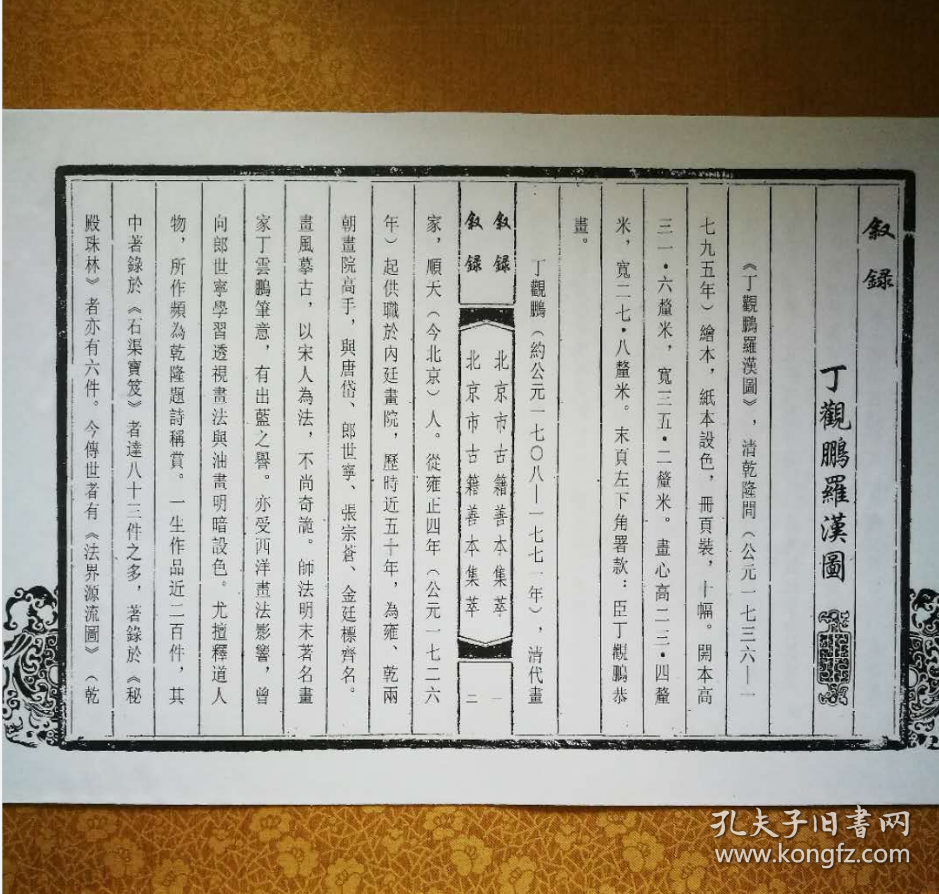 叙錄
丁觀鵬羅漢圖
《丁觀鵬羅漢圖》，清乾隆間（公元一七三六—一
七九五年）繪本，紙本設色，冊頁裝，十幅。開本高
三一·六釐米，寬三五·二釐米。畫心高二三·四釐
米，寬二七·八釐米。末頁左下角署款：臣丁觀鵬恭
畫。
丁觀鵬（約公元一七〇八—一七七一年），清代畫
叙錄 北京市古籍善本集萃 一
叙錄 北京市古籍善本集萃 二
家，順天（今北京）人。從雍正四年（公元一七二六
年）起供職於內廷畫院，歷時近五十年，為雍、乾兩
朝畫院高手，與唐岱、郎世寧、張宗蒼、金廷標齊名。
畫風摹古，以宋人為法，不尚奇詭。師法明末著名畫
家丁雲鵬筆意，有出藍之譽。亦受西洋畫法影響，曾
向郎世寧學習透視畫法與油畫明暗設色。尤擅釋道人
物，所作頻為乾隆題詩稱賞。一生作品近二百件，其
中著錄於《石渠寶笈》者達八十三件之多，著錄於《秘
殿珠林》者亦有六件。今傳世者有《法界源流圖》（乾
孔夫子旧书网
www.kongfz.com